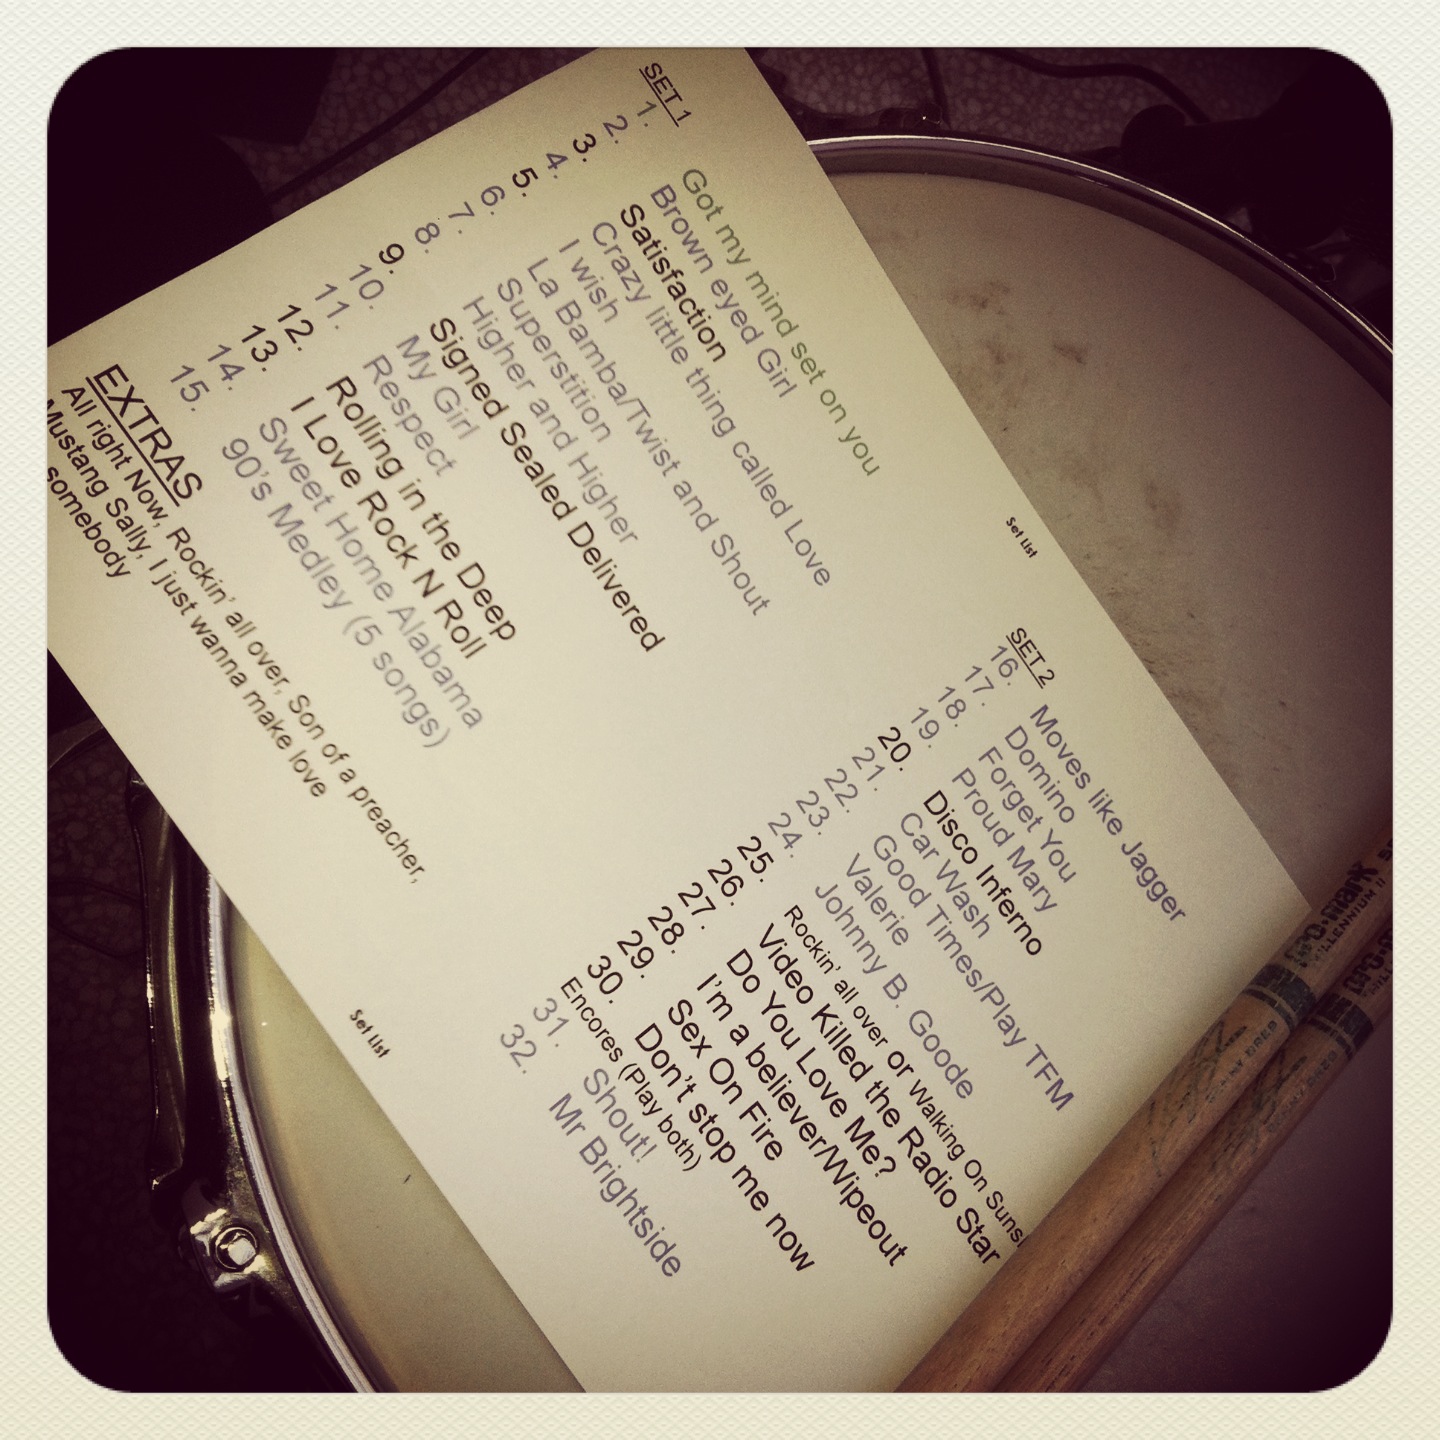 SET 1
1. Got my mind set on you
2. Brown eyed Girl
3. Satisfaction
4. Crazy little thing called Love
5. I wish
6. La Bamba/Twist and Shout
7. Superstition
8. Higher and Higher
9. Signed Sealed Delivered
10. My Girl
11. Respect
12. Rolling in the Deep
13. I Love Rock N Roll
14. Sweet Home Alabama
15. 90's Medley (5 songs)
EXTRAS
All right Now, Rockin' all over, Son of a preacher,
Mustang Sally, I just wanna make love
somebody
Set List
SET 2
16. Moves like Jagger
17. Domino
18. Forget You
19. Proud Mary
20. Disco Inferno
21. Car Wash
22. Good Times/Play TFM
23. Valerie
24. Johnny B. Goode
25. Rockin' all over or Walking On Suns
26. Video Killed the Radio Star
27. Do You Love Me?
28. I'm a believer/Wipeout
29. Sex On Fire
30. Don't stop me now
Encores (Play both)
31. Shout!
32. Mr Brightside
Set List
MILLENNIUM II